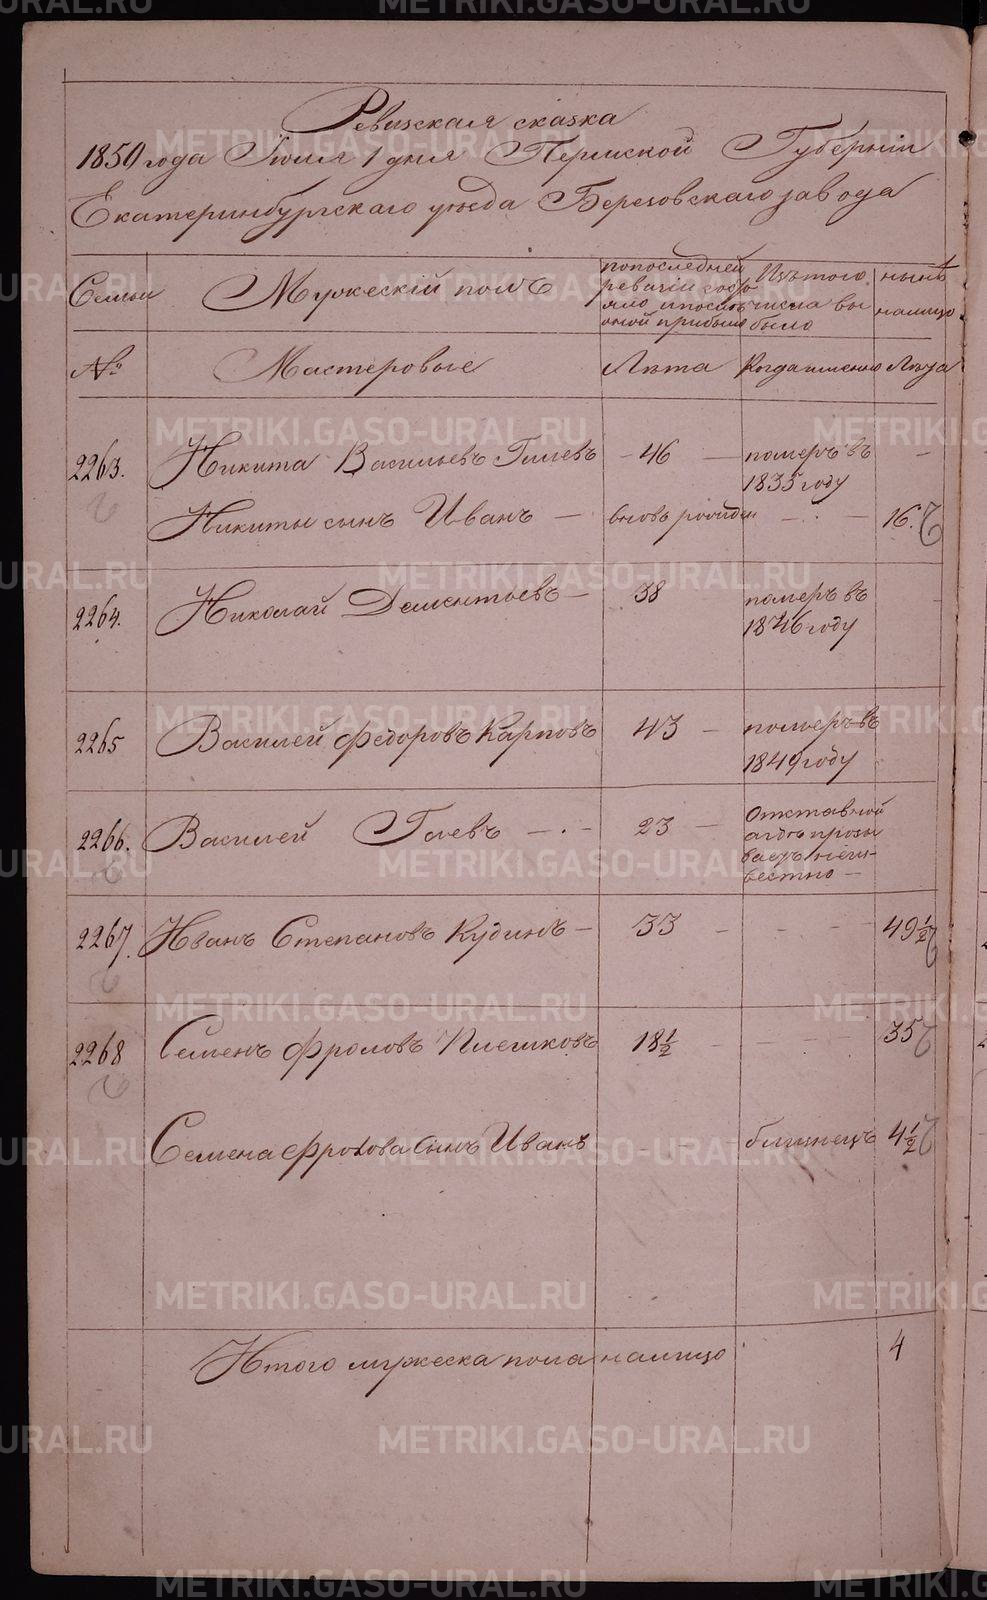 Ревизская сказка
1850 года Іюля 1 дня Пермской Губерніи
Екатеринбургскаго уезда Березовскаго завода
Семьи Мужескій полъ по последней ревизіи состояло и после оной прибыло Изъ того числа выбыло ныне налицо
№ Мастеровые Лета Когда именно Лета
2263. Никита Васильевъ Гилевъ 46 померъ въ
1835 году
Никиты сынъ Иванъ вновь рожден 16.
2264. Николай Дементьевъ 38 померъ въ
1846 году
2265 Василей Федоровъ Карповъ 43 померъ въ
1849 году
2266. Василей 23 Отставной
а где прожи
ваетъ неиз-
вестно
2267. Иванъ Степановъ Кудинъ 33 49 1/2
2268 Семенъ Фроловъ Плешковъ 18 1/2 35
Семена Фролова сынъ Иванъ близнецъ 4 1/2
Итого мужеска пола налицо 4
METRIKI.GASO-URAL.RU